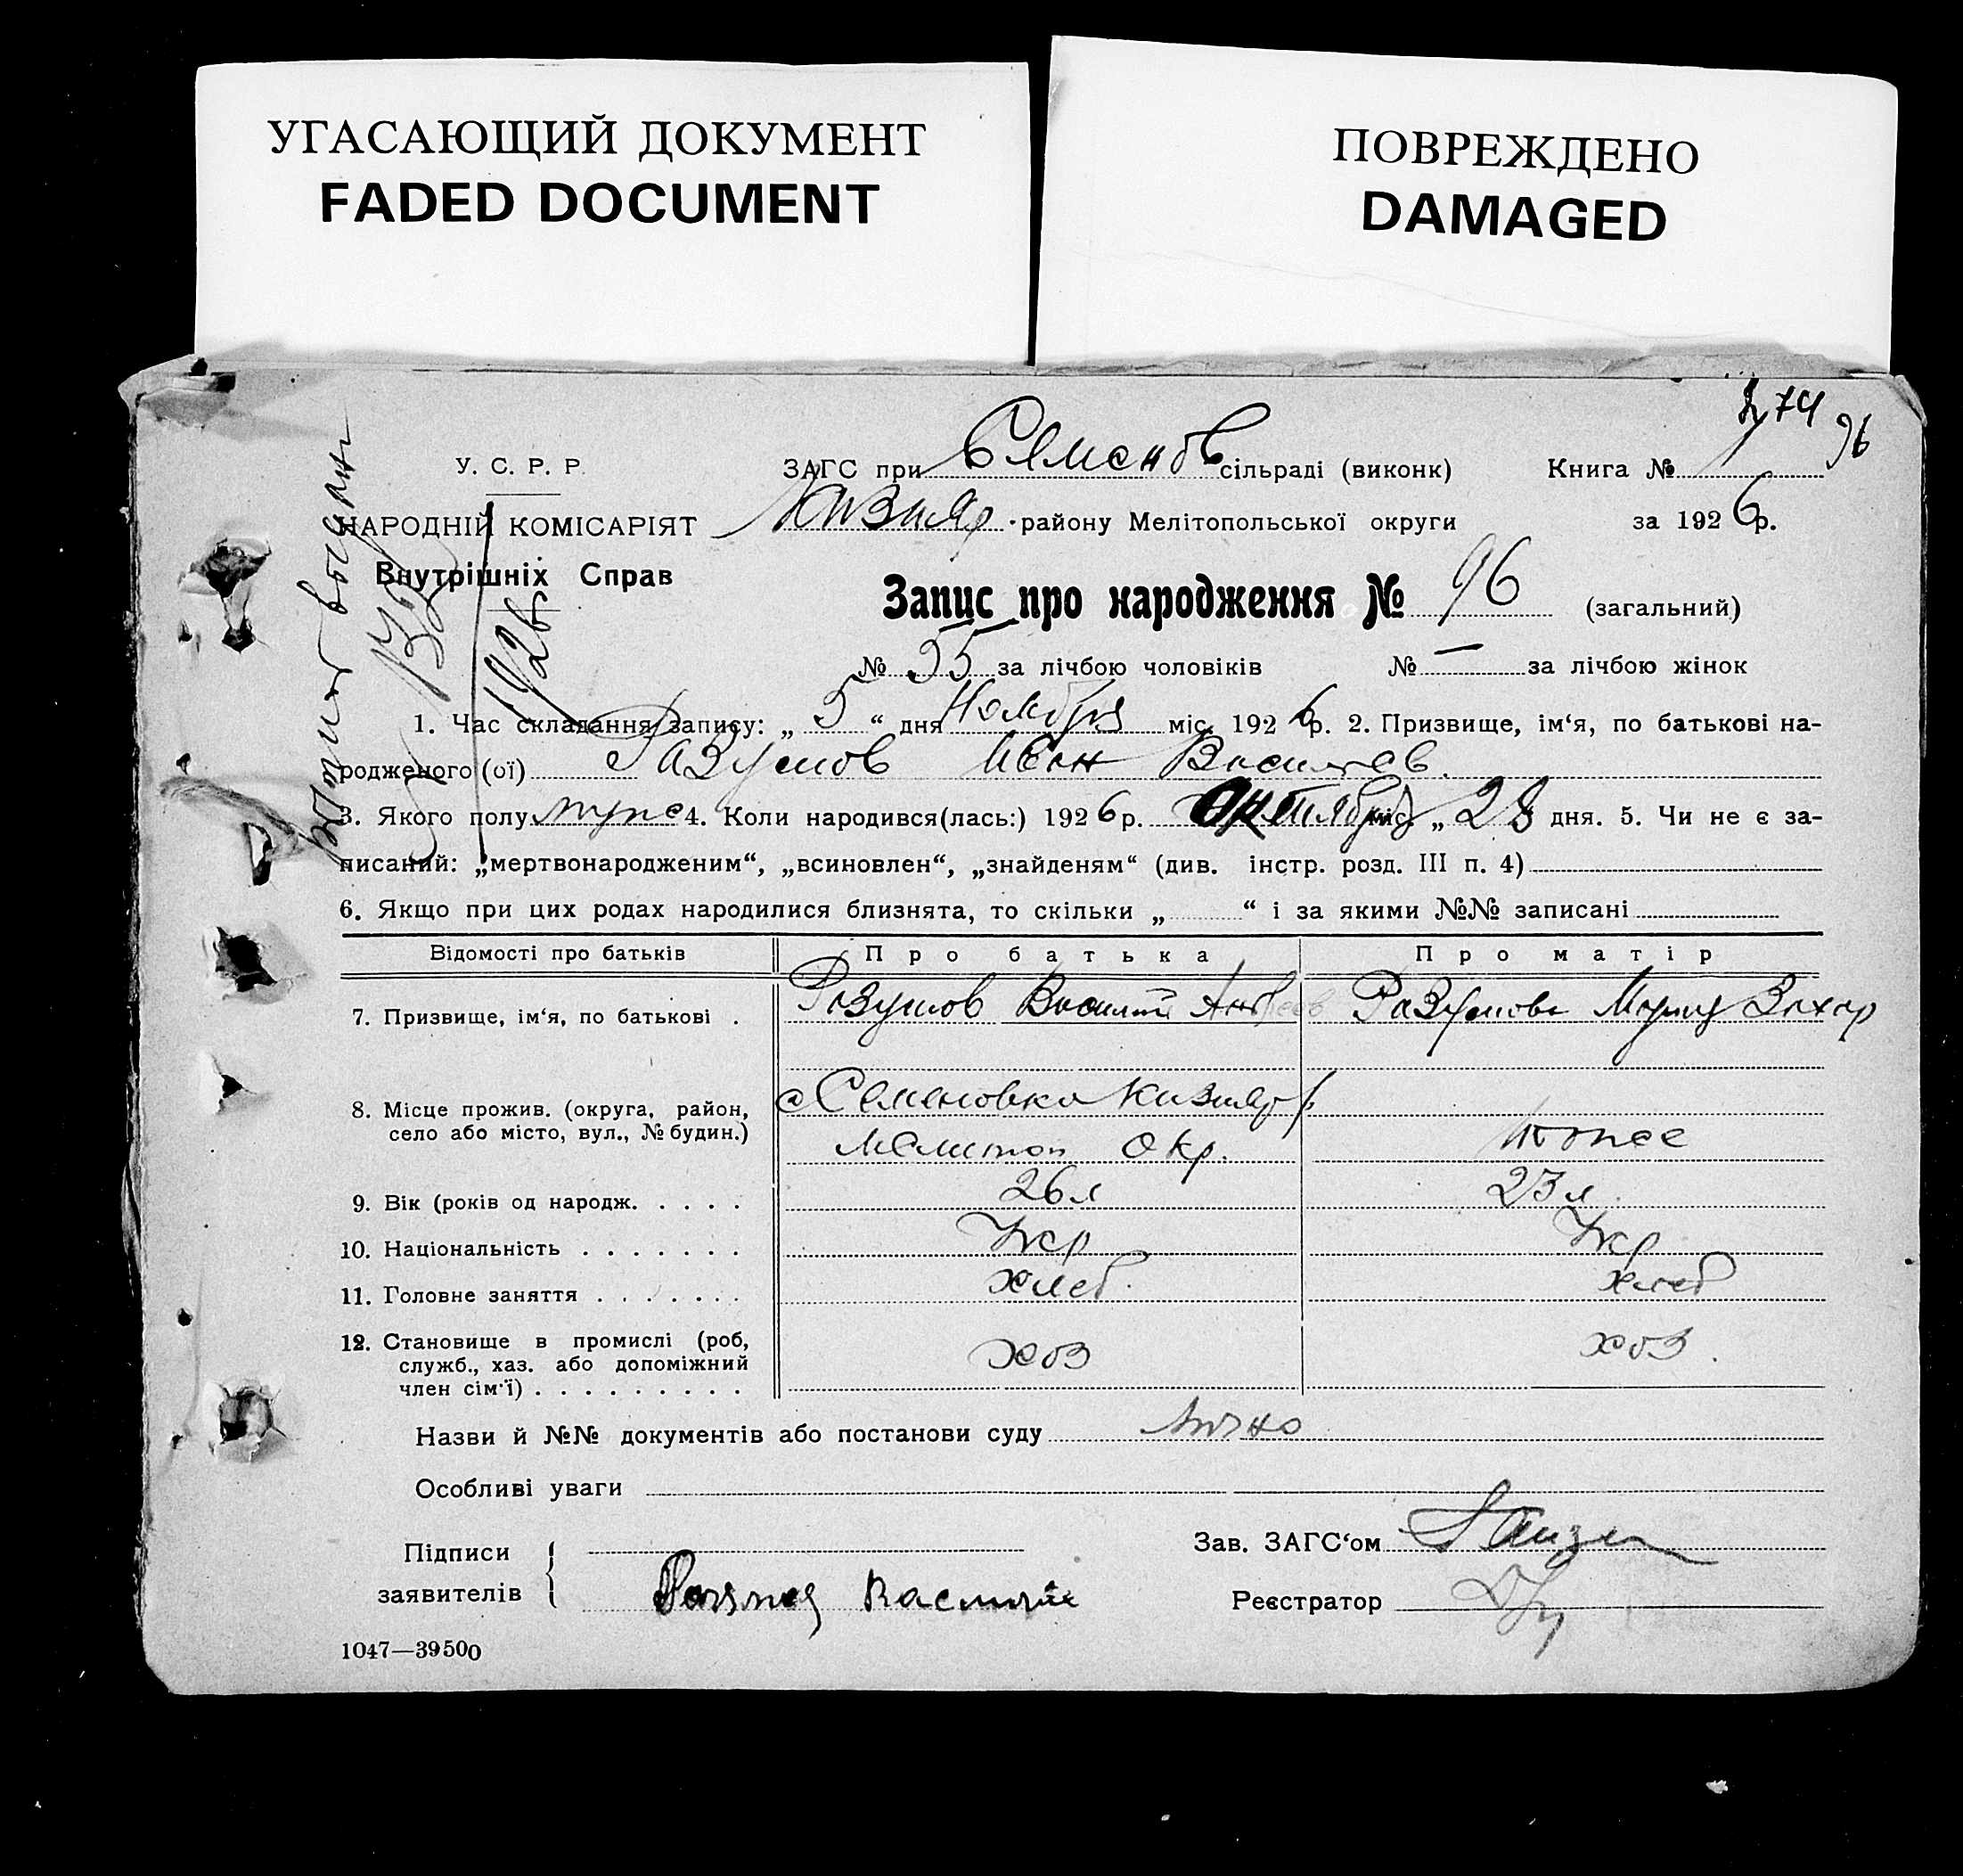 УГАСАЮЩИЙ ДОКУМЕНТ
FADED DOCUMENT
ПОВРЕЖДЕНО
DAMAGED
74 96
У. С. Р. Р.
НАРОДНІЙ КОМІСАРІЯТ
Внутрішніх Справ
1926
ЗАГС при Семенов сільраді (виконк) Книга №
Кизияр району Мелітопольської округи за 1926р.
Запис про народження № 96 (загальний)
№ 55 за лічбою чоловіків № — за лічбою жінок
1. Час складання запису: „ 5 “ дня Ноября міс. 1926р. 2. Призвище, ім‘я, по батькові на-
родженого (ої) Разумов Иван Васильев.
3. Якого полу муже 4. Коли народився(лась:) 1926р. Октября міс. „ 28 дня. 5. Чи не є за-
писаний: „мертвонародженим“, „всиновлен“, „знайденям“ (див. інстр. розд. III п. 4)
6. Якщо при цих родах народилися близнята, то скільки „ “ і за якими №№ записані
Відомості про батьків Про батька Про матір
7. Призвище, ім‘я, по батькові . Разумов Василий Андреев Разумова Мария Захар
8. Місце прожив. (округа, район, с Семеновка Кизияр р
село або місто, вул., № будин.) Мелитоп Окр. тоже
9. Вік (років од народж. . . . . 26л 23л.
10. Національність . . . . . . . Укр Укр
11. Головне заняття . . . . . . . хлеб. хлеб
12. Становище в промислі (роб, хоз хоз.
служб., хаз. або допоміжний
член сім‘ї) . . . . . . . . .
Назви й №№ документів або постанови суду
Особливі уваги
Підписи
заявителів Василий
Зав. ЗАГС‘ом
Реєстратор
1047—39500